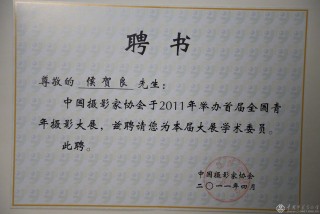 聘书
尊敬的 侯贺良 先生：
中国摄影家协会于2011年举办首届全国青
年摄影大展，兹聘请您为本届大展学术委员。
此聘。
中国摄影家协会
二〇一一年四月